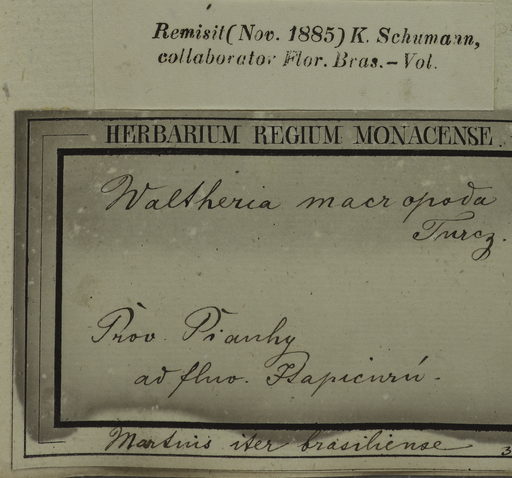 Remisit (Nov. 1885) K. Schumann,
collaborator Flor. Bras. – Vol.
HERBARIUM REGIUM MONACENSE.
Waltheria macropoda
Turcz.
Prov. Piauhy
ad fluv. Itapicurú.
Martius iter brasiliense
3